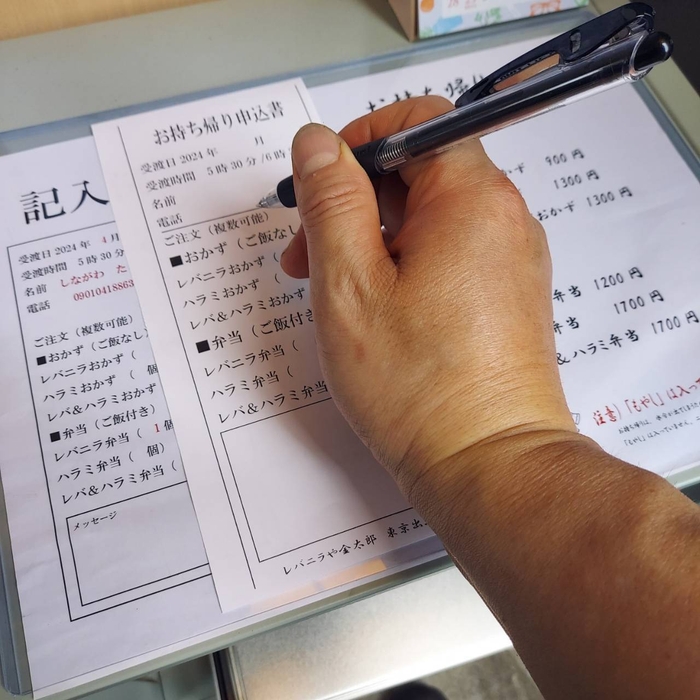 記入
受渡日 2024 年 4 月
受渡時間 5 時 30 分
名前 しながわ た
電話 0901041886
ご注文（複数可能）
■おかず（ご飯なし
レバニラおかず（
ハラミおかず（ 個
レバ&ハラミおかず
■弁当（ご飯付き）
レバニラ弁当（ 1 個
ハラミ弁当（ 個）
レバ&ハラミ弁当（
メッセージ
お持ち帰り申込書
受渡日 2024 年 月
受渡時間 5 時 30 分 /6 時
名前
電話
ご注文（複数可能）
■おかず（ご飯なし
レバニラおかず（
ハラミおかず（
レバ&ハラミおかず
■弁当（ご飯付き
レバニラ弁当（
ハラミ弁当（
レバ&ハラミ弁当
レバニラや金太郎 東京出
お持ち帰り
ず 900 円
1300 円
おかず 1300 円
弁当 1200 円
弁当 1700 円
&ハラミ弁当 1700 円
注書）「もやし」は入っ
「もやし」は入っていません